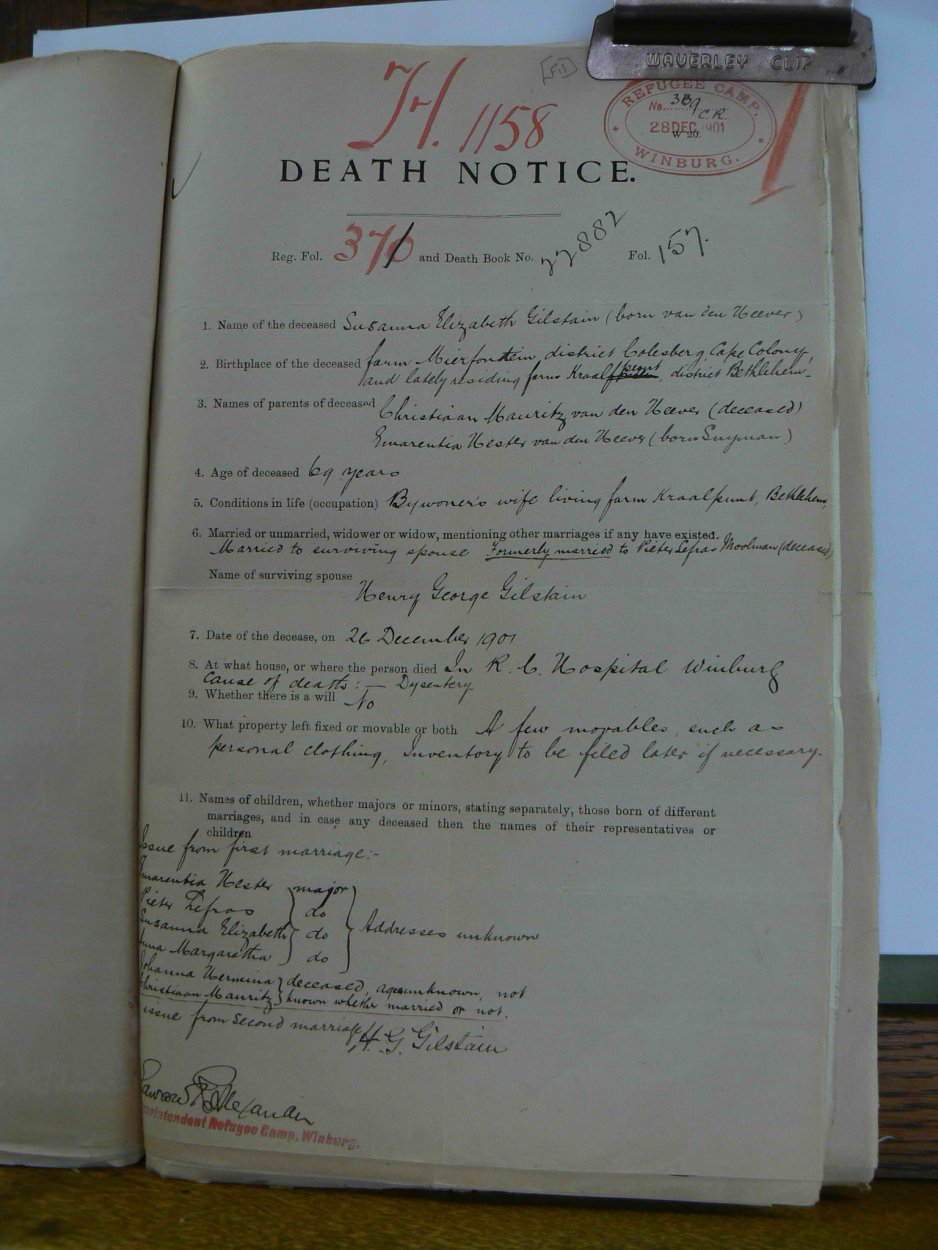 WAVERLEY CLIP
H. 1158
REFUGEE CAMP,
No. 389
C.R.
28 DEC 1901
W 20.
WINBURG.
DEATH NOTICE.
Reg. Fol. 371 and Death Book No. 22882 Fol. 157.
1. Name of the deceased Susanna Elizabeth Gilstain (born van den Heever)
2. Birthplace of the deceased farm Mierfontein, district Colesberg, Cape Colony,
and lately residing farm Kraalpunt, district Bethlehem.
3. Names of parents of deceased Christiaan Mauritz van den Heever (deceased)
Emarentia Hester van den Heever (born Snyman)
4. Age of deceased 69 years
5. Conditions in life (occupation) Bywoner's wife living farm Kraalpunt, Bethlehem
6. Married or unmarried, widower or widow, mentioning other marriages if any have existed.
Married to surviving spouse Formerly married to Pieter Lefras Moolman (deceased)
Name of surviving spouse
Henry George Gilstain
7. Date of the decease, on 26 December 1901
8. At what house, or where the person died In R. C. Hospital Winburg
Cause of death: — Dysentery
9. Whether there is a will No
10. What property left fixed or movable or both A few movables, such as
personal clothing, Inventory to be filed later if necessary.
11. Names of children, whether majors or minors, stating separately, those born of different
marriages, and in case any deceased then the names of their representatives or
children
Issue from first marriage:-
Emarentia Hester major
Pieter Lefras do
Susanna Elizabeth do Addresses unknown
Anna Margaretha do
Johanna Hermina deceased, ages unknown, not
Christiaan Mauritz known whether married or not.
issue from second marriage
H. G. Gilstain
Alexander
Superintendent Refugee Camp, Winburg.